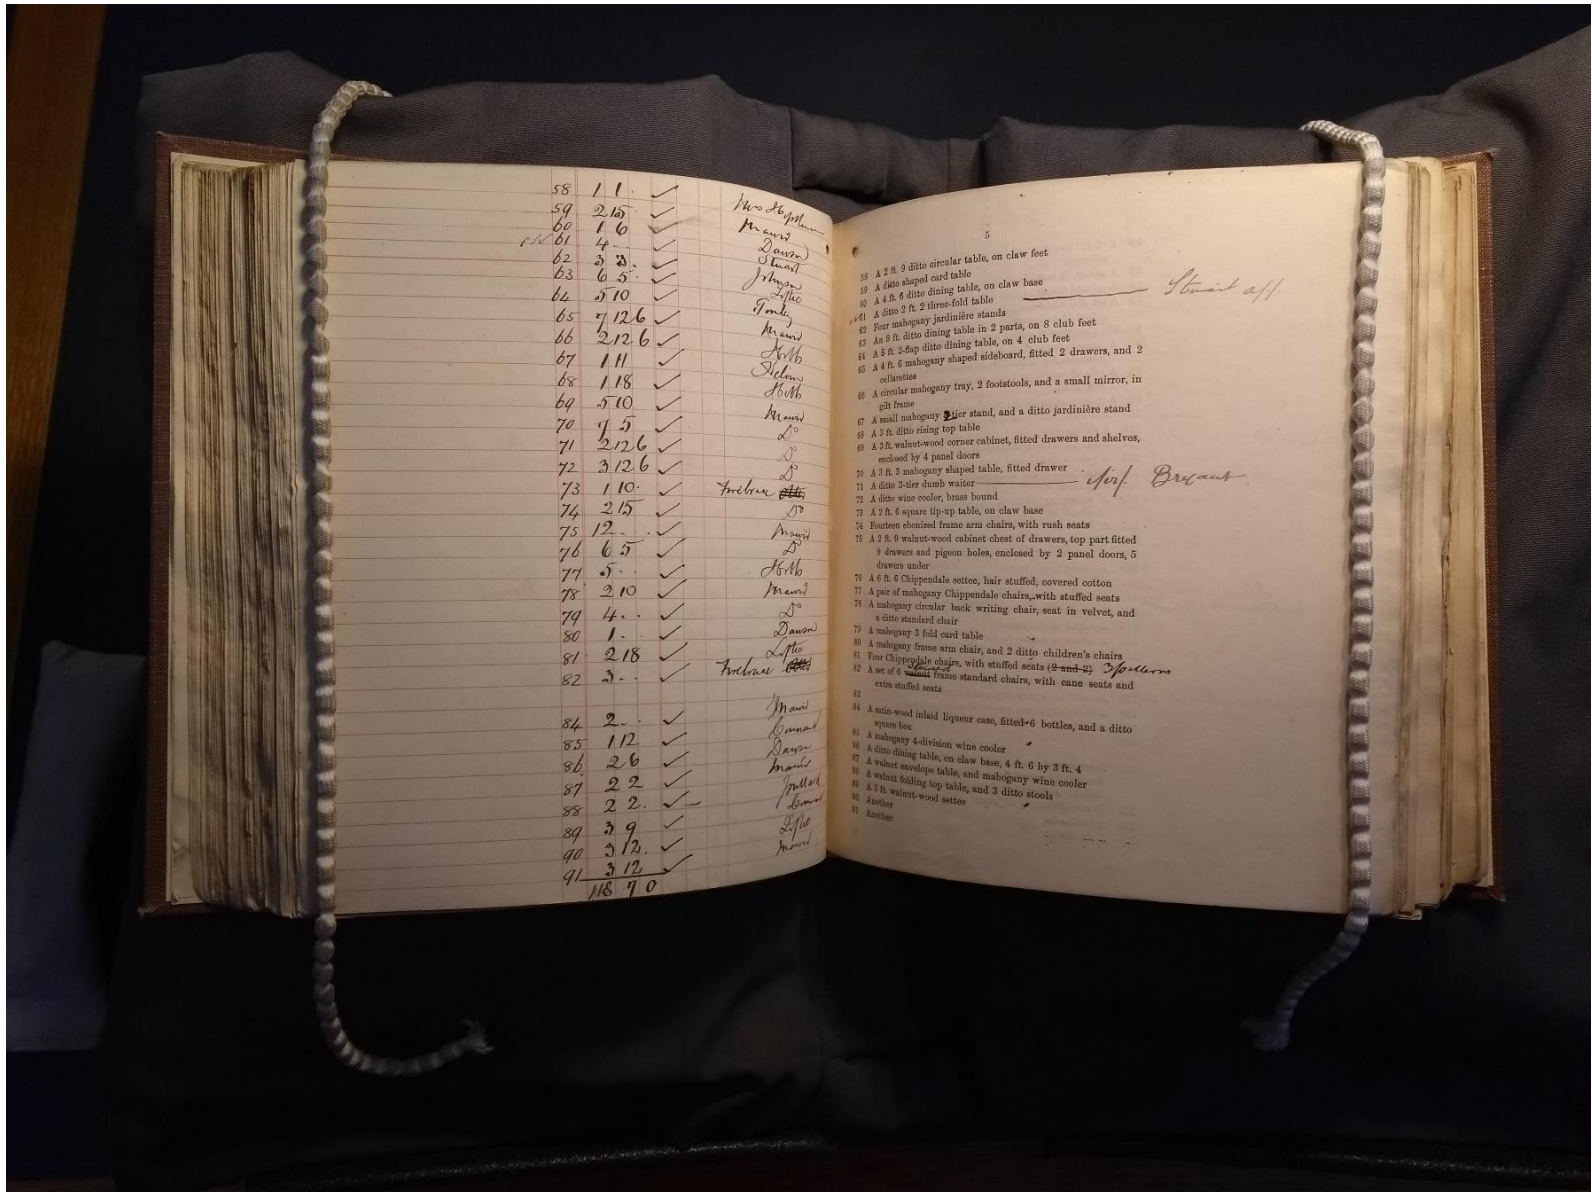 58 1 1 ✓ Mrs
59 2 15 ✓ Mawd
60 1 6 ✓ Dawson
61 4 - - ✓ Stuart
62 3 3 . ✓ Johnson
63 6 5 . ✓ Loftie
64 5 10 ✓
65 7 12 6 ✓ Mawd
66 2 12 6 ✓
67 1 11 ✓
68 1 18 ✓
69 5 10 ✓ Mawd
70 7 5 ✓ Do
71 2 12 6 ✓ Do
72 3 12 6 ✓ Do
73 1 10 . ✓ Firebrace
74 2 15 ✓ Do
75 12 . . ✓ Mawd
76 6 5 ✓ Do
77 5 . . ✓
78 2 10 ✓ Mawd
79 4 . . ✓ Do
80 1 . ✓ Dawson
81 2 18 ✓ Loftie
82 3 - . ✓ Firebrace
Mawd
84 2 - . ✓
85 1 12 ✓ Dawson
86 2 6 ✓ Mawd
87 2 2 ✓
88 2 2 . ✓
89 3 9 ✓ Loftie
90 3 12 . ✓ Mawd
91 3 12 ✓
118 7 0
5
58 A 2 ft. 9 ditto circular table, on claw feet
59 A ditto shaped card table
60 A 4 ft. 6 ditto dining table, on claw base
61 A ditto 2 ft. 2 three-fold table Stuart aff
62 Four mahogany jardinière stands
63 An 8 ft. ditto dining table in 2 parts, on 8 club feet
64 A 5 ft. 2-flap ditto dining table, on 4 club feet
65 A 4 ft. 6 mahogany shaped sideboard, fitted 2 drawers, and 2
cellarettes
66 A circular mahogany tray, 2 footstools, and a small mirror, in
gilt frame
67 A small mahogany 2 tier stand, and a ditto jardinière stand
68 A 3 ft. ditto rising top table
69 A 3 ft. walnut-wood corner cabinet, fitted drawers and shelves,
enclosed by 4 panel doors
70 A 3 ft. 3 mahogany shaped table, fitted drawer
71 A ditto 3-tier dumb waiter Bryant
72 A ditto wine cooler, brass bound
73 A 2 ft. 6 square tip-up table, on claw base
74 Fourteen ebonized frame arm chairs, with rush seats
75 A 2 ft. 9 walnut-wood cabinet chest of drawers, top part fitted
9 drawers and pigeon holes, enclosed by 2 panel doors, 5
drawers under
76 A 6 ft. 6 Chippendale settee, hair stuffed, covered cotton
77 A pair of mahogany Chippendale chairs, with stuffed seats
78 A mahogany circular back writing chair, seat in velvet, and
a ditto standard chair
79 A mahogany 3 fold card table
80 A mahogany frame arm chair, and 2 ditto children's chairs
81 Four Chippendale chairs, with stuffed seats (2 and 2) 3 patterns
82 A set of 6 stained walnut frame standard chairs, with cane seats and
extra stuffed seats
83
84 A satin-wood inlaid liqueur case, fitted 6 bottles, and a ditto
square box
85 A mahogany 4-division wine cooler
86 A ditto dining table, on claw base, 4 ft. 6 by 3 ft. 4
87 A walnut envelope table, and mahogany wine cooler
88 A walnut folding top table, and 3 ditto stools
89 A 5 ft. walnut-wood settee
90 Another
91 Another